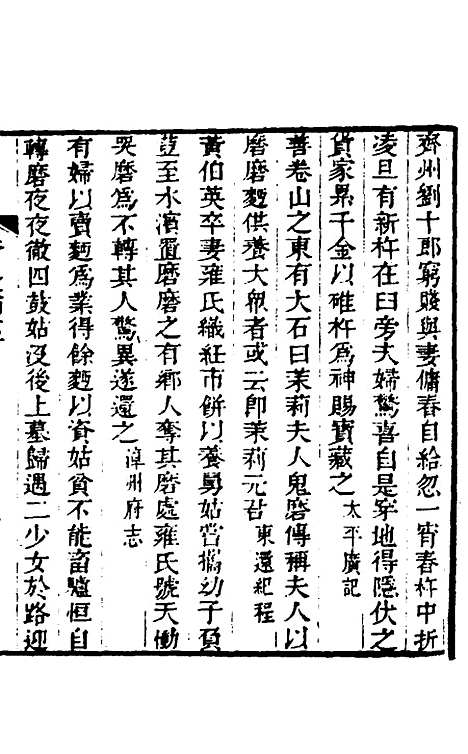 齊州劉十郎窮賤與妻傭舂自給忽一宵舂杵中折
凌旦有新杵在臼旁夫婦驚喜自是穿地得隱伏之
貨家累千金以碓杵爲神賜寶藏之太平廣記
善卷山之東有大石曰茉莉夫人鬼磨傳稱夫人以
磨磨麵供養大衆者或云卽茉莉元台東還紀程
黃伯英卒妻雍氏織紝市餅以養舅姑嘗攜幼子負
荳至水濱置磨磨之有鄉人奪其磨處雍氏號天慟
哭磨爲不轉其人驚異遂還之漳州府志
有婦以賣麵爲業得餘麵以資姑貧不能畜驢恒自
轉磨夜夜徹四鼓姑沒後上墓歸遇二少女於路迎